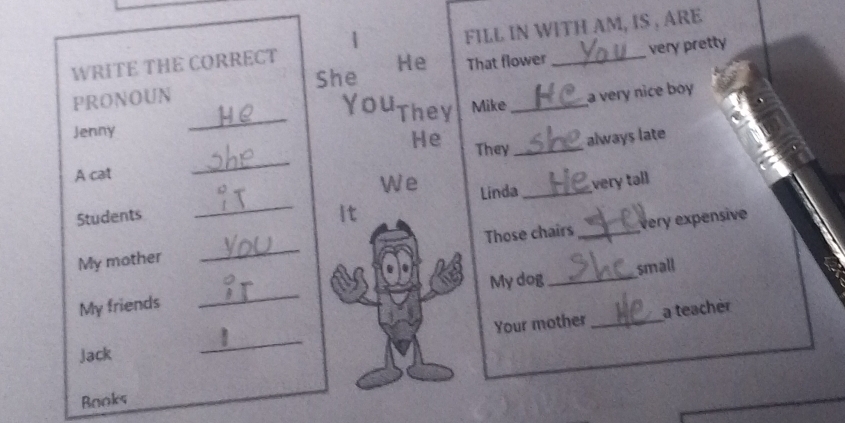 WRITE THE CORRECT
PRONOUN
Jenny He
A cat She
Students iT
My mother YOU
My friends iT
Jack I
Books
I
He
She
You They
He
We
It
FILL IN WITH AM, IS , ARE
That flower You very pretty
Mike He a very nice boy
They She always late
Linda He very tall
Those chairs very expensive
My dog She small
Your mother He a teacher